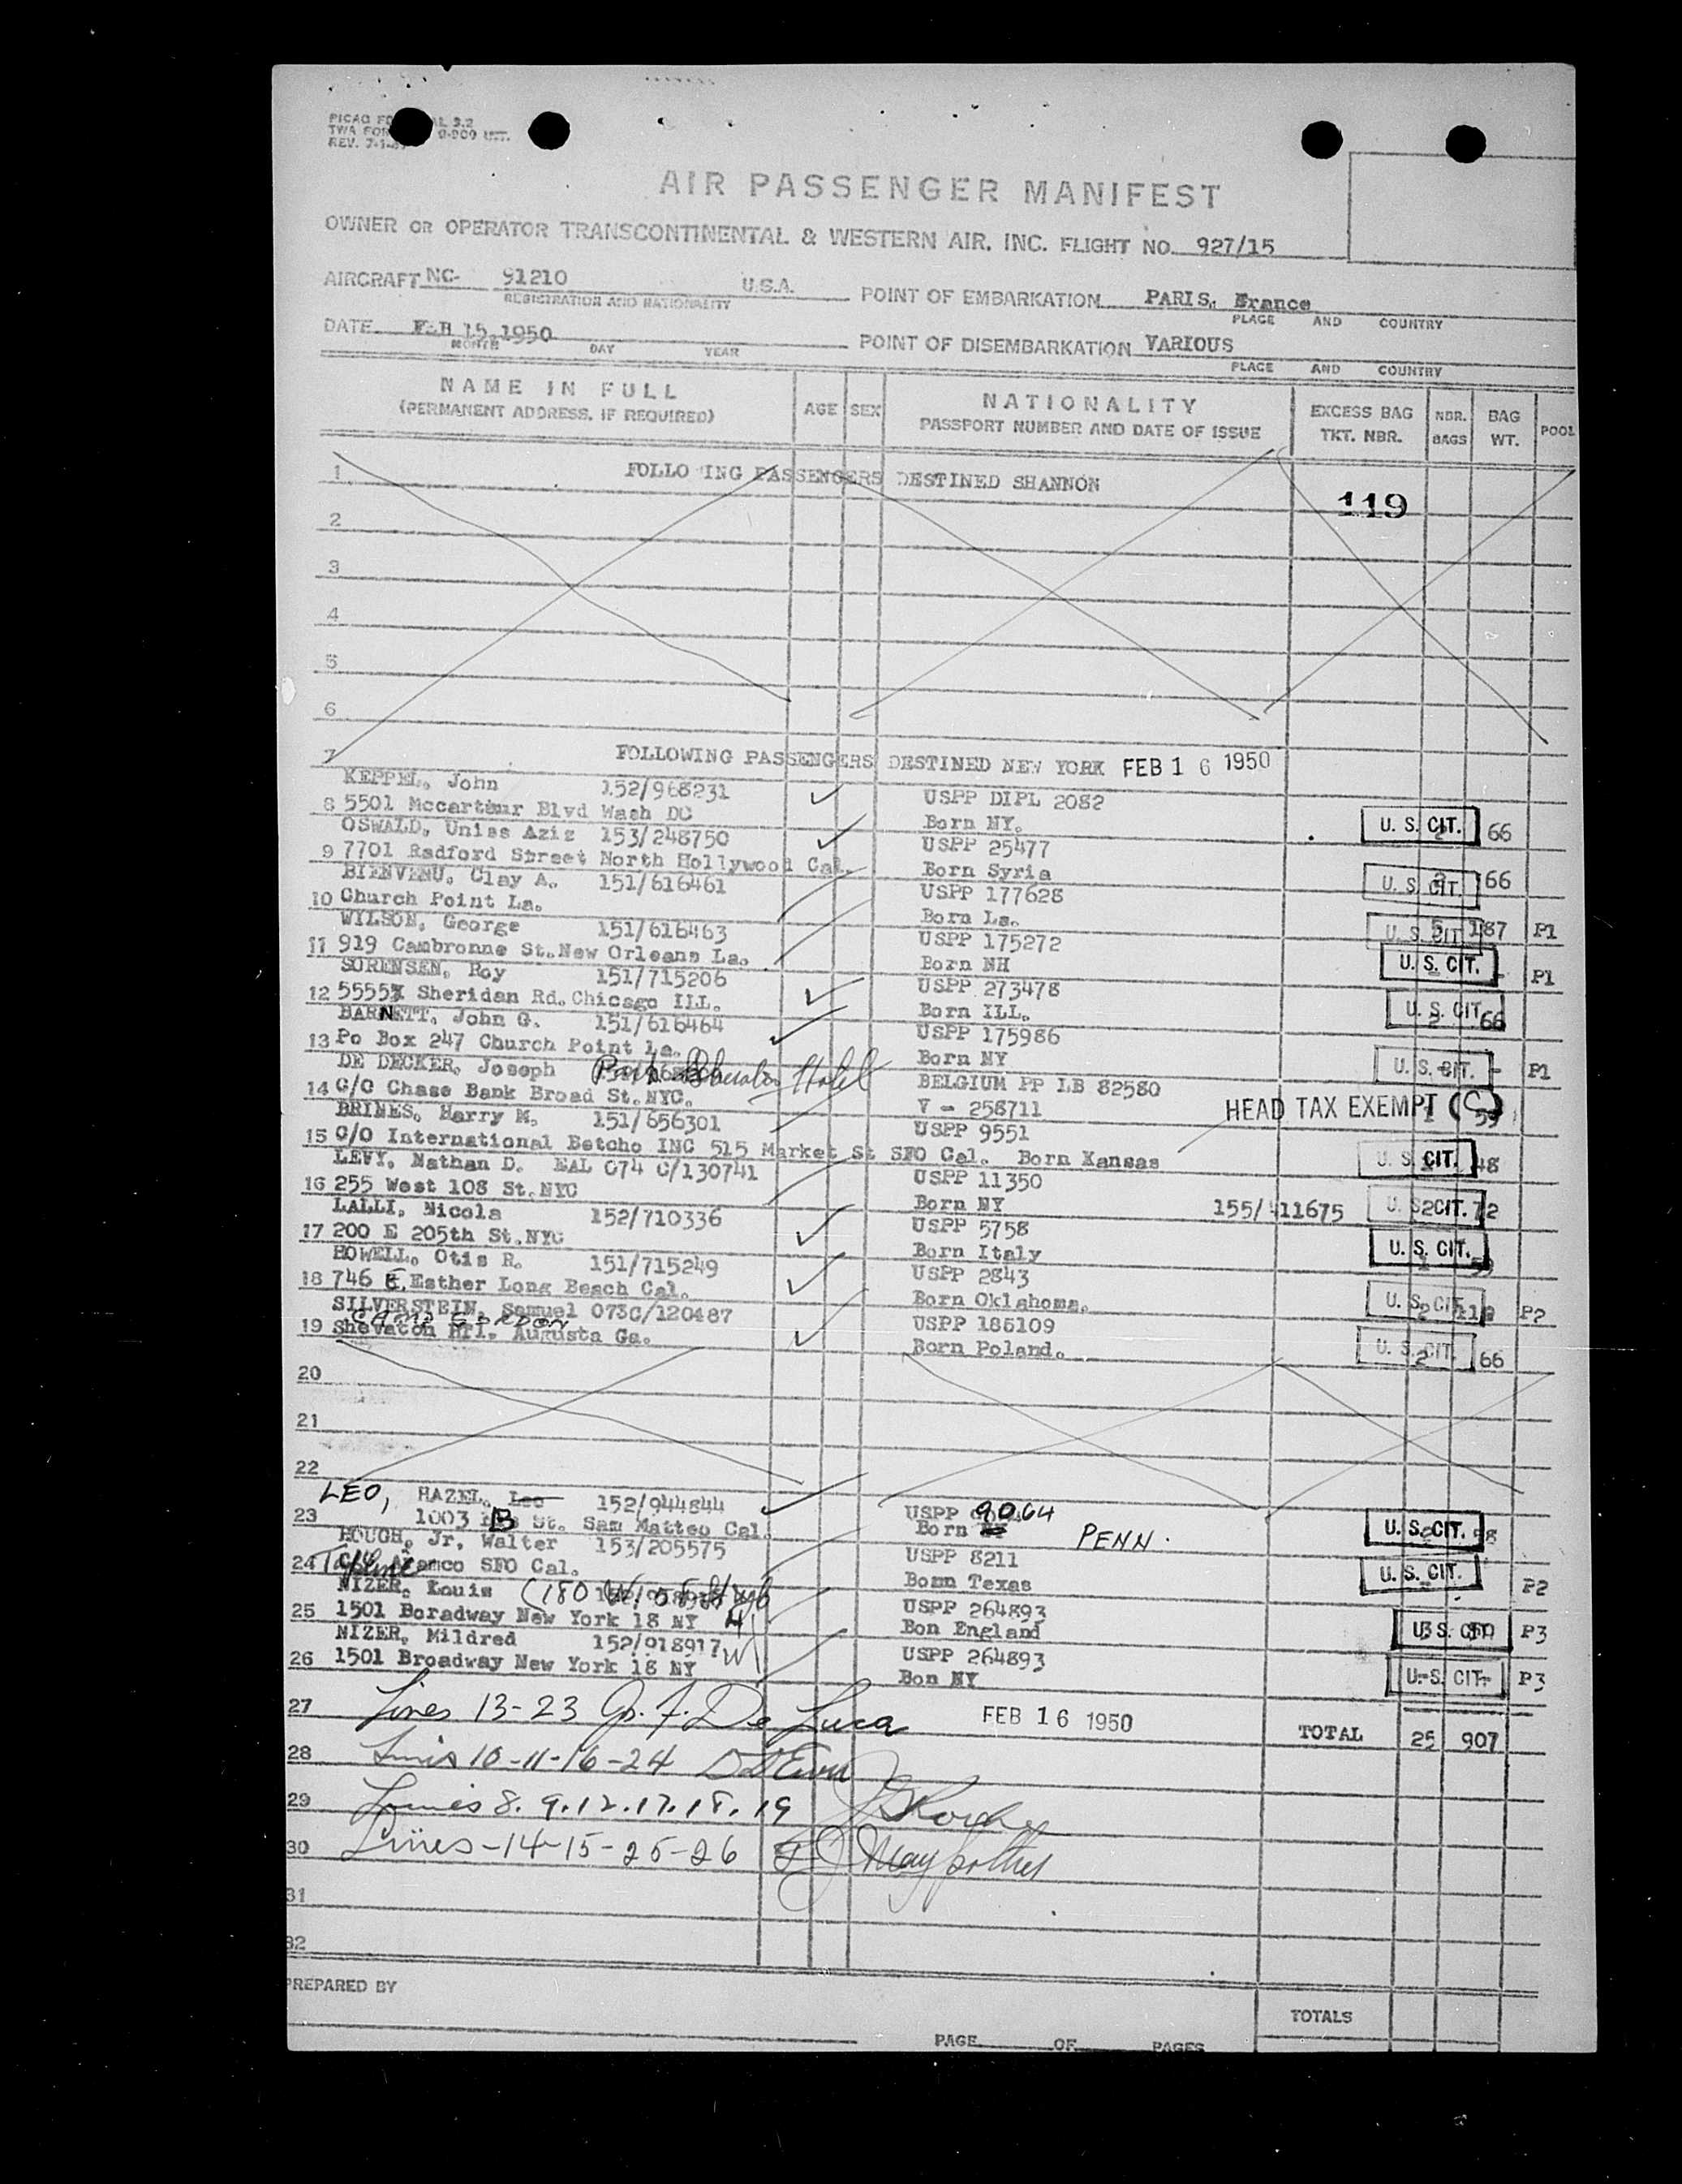 PICAO FO AL 3.2
TWA FOR 0-909 INT.
REV. 7-1-
AIR PASSENGER MANIFEST
OWNER OR OPERATOR TRANSCONTINENTAL & WESTERN AIR. INC. FLIGHT NO. 927/15
AIRCRAFT NC- 91210 U.S.A. POINT OF EMBARKATION PARIS, France
REGISTRATION AND NATIONALITY PLACE AND COUNTRY
DATE FEB 15,1950 POINT OF DISEMBARKATION VARIOUS
MONTH DAY YEAR PLACE AND COUNTRY
NAME IN FULL AGE SEX NATIONALITY EXCESS BAG NBR. BAG POOL
(PERMANENT ADDRESS, IF REQUIRED) PASSPORT NUMBER AND DATE OF ISSUE TKT. NBR. BAGS WT.
1 FOLLO ING PASSENGERS DESTINED SHANNON
119
2
3
4
5
6
7 FOLLOWING PASSENGERS DESTINED NEW YORK FEB 16 1950
KEPPEL, John 152/968231 USPP DIPL 2082
8 5501 Mccarthur Blvd Wash DC Born NY. U. S. CIT. 66
OSWALD, Uniss Aziz 153/248750 USPP 25477
9 7701 Radford Street North Hollywood Cal. Born Syria U. S. CIT. 66
BIENVENU, Clay A. 151/616461 USPP 177628
10 Church Point La. Born La. U. S. CIT 187 P1
WILSON, George 151/616463 USPP 175272
11 919 Cambronne St.New Orleans La. Born NH U. S. CIT. - P1
SORENSEN, Roy 151/715206 USPP 273478
12 5555½ Sheridan Rd.Chicago ILL. Born ILL. U. S. CIT. 66
BARNETT, John G. 151/616464 USPP 175986
13 Po Box 247 Church Point La. Born NY U. S. CIT. - P1
DE DECKER, Joseph Park Sheraton Hotel BELGIUM PP LB 82580
14 C/O Chase Bank Broad St.NYC. V - 258711 HEAD TAX EXEMPT (C) 59
BRINES, Harry M. 151/656301 USPP 9551
15 C/O International Betcho INC 515 Market St SFO Cal. Born Kansas U. S. CIT. 48
LEVY, Nathan D. EAL 074 C/130741 USPP 11350
16 255 West 108 St.NYC Born NY 155/411675 U. S. 2 CIT. 72
LALLI, Nicola 152/710336 USPP 5758
17 200 E 205th St.NYC Born Italy U. S. CIT. 59
HOWELL, Otis R. 151/715249 USPP 2843
18 746 E. Esther Long Beach Cal. Born Oklahoma. U. S. 2 CIT P2
SILVERSTEIN, Samuel 073C/120487 USPP 186109
CAMP GORDON
19 Shevaton Htl. Augusta Ga. Born Poland. U. S. 2 CIT. 66
20
21
22
LEO, HAZEL, Leo 152/944844 USPP 9064
23 1003 B St. Sam Matteo Cal. Born PENN. U. S. CIT. 58
HOUGH, Jr, Walter 153/205575 USPP 8211
24 Tapline Aramco SFO Cal. Bomn Texas U. S. CIT. P2
NIZER, Louis (180 W. USPP 264893
25 1501 Boradway New York 18 NY H Bon England U. S. CIT. P3
NIZER, Mildred 152/918917 W USPP 264893
26 1501 Broadway New York 18 NY Bon NY U. S. CIT. P3
27 Lines 13-23 De Luca FEB 16 1950 TOTAL 25 907
28 Lines 10-11-16-24
29 Lines 8. 9. 12. 17. 18. 19
30 Lines-14-15-25-26
31
32
PREPARED BY
TOTALS
PAGE OF PAGES